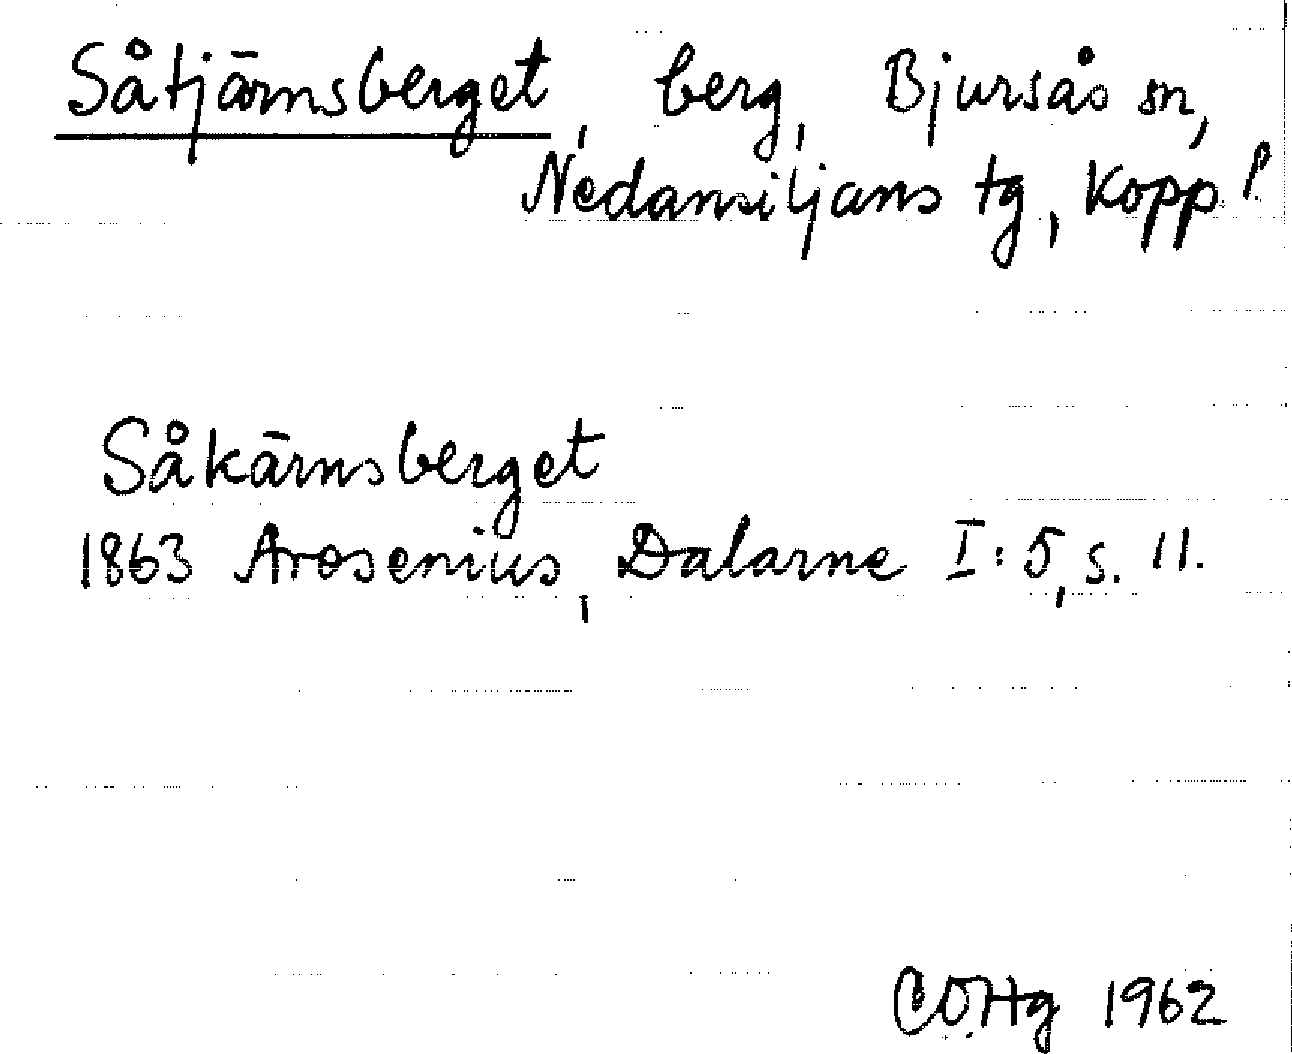 Såtjärnsberget, berg, Bjursås sn,
Nedansiljans tg, Kopp l.
Såkärnsberget
1863 Arosenius, Dalarne I:5, s. 11.
COHg 1962